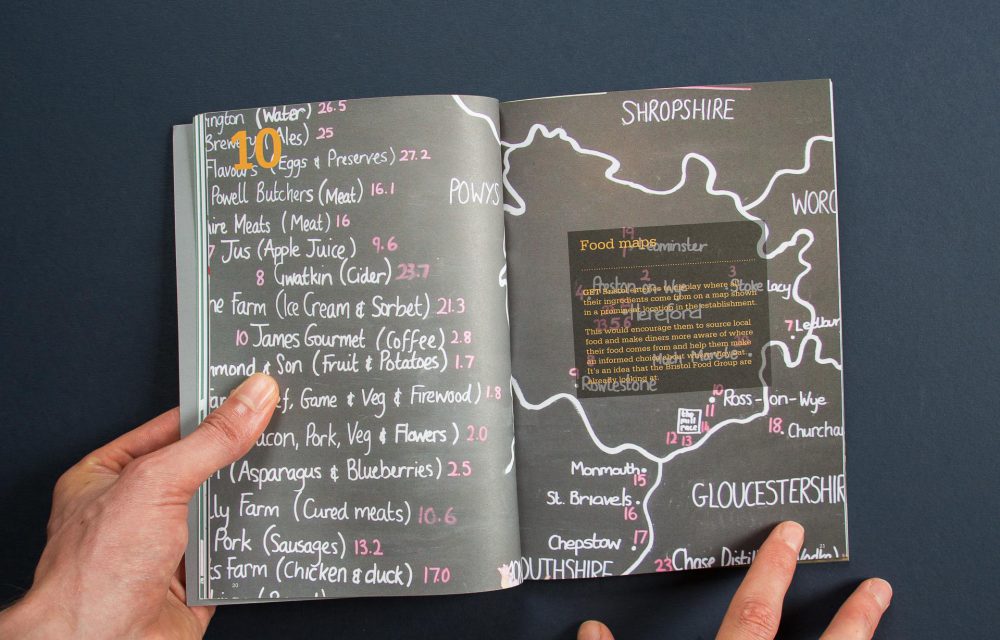 10
(Water) 26.5
Ales) 25
Flavours (Eggs & Preserves) 27.2
Powell Butchers (Meat) 16.1
Meats (Meat) 16
Jus (Apple Juice) 9.6
8 Gwatkin (Cider) 23.7
Farm (Ice Cream & Sorbet) 21.3
10 James Gourmet (Coffee) 2.8
& Son (Fruit & Potatoes) 1.7
Game & Veg & Firewood) 1.8
Pork, Veg & Flowers) 2.0
(Asparagus & Blueberries) 2.5
Farm (Cured meats) 10.6
Pork (Sausages) 13.2
Farm (Chicken & duck) 17.0
20
POWYS
SHROPSHIRE
Food maps
their ingredients come from on a map shown
in a prominent location in the establishment.
This would encourage them to source local
food and make diners more aware of where
their food comes from and help them make
an informed choice about what they eat.
It's an idea that the Bristol Food Group are
already looking at.
19
Leominster
2
3
Preston-on-Wye
Stoke lacy
Hereford
7
9
Rowlestone
10
Ross-on-Wye
11
the mill race
14
12 13
18
Monmouth
15
St. Briavels
16
Chepstow
17
23 Chase
21